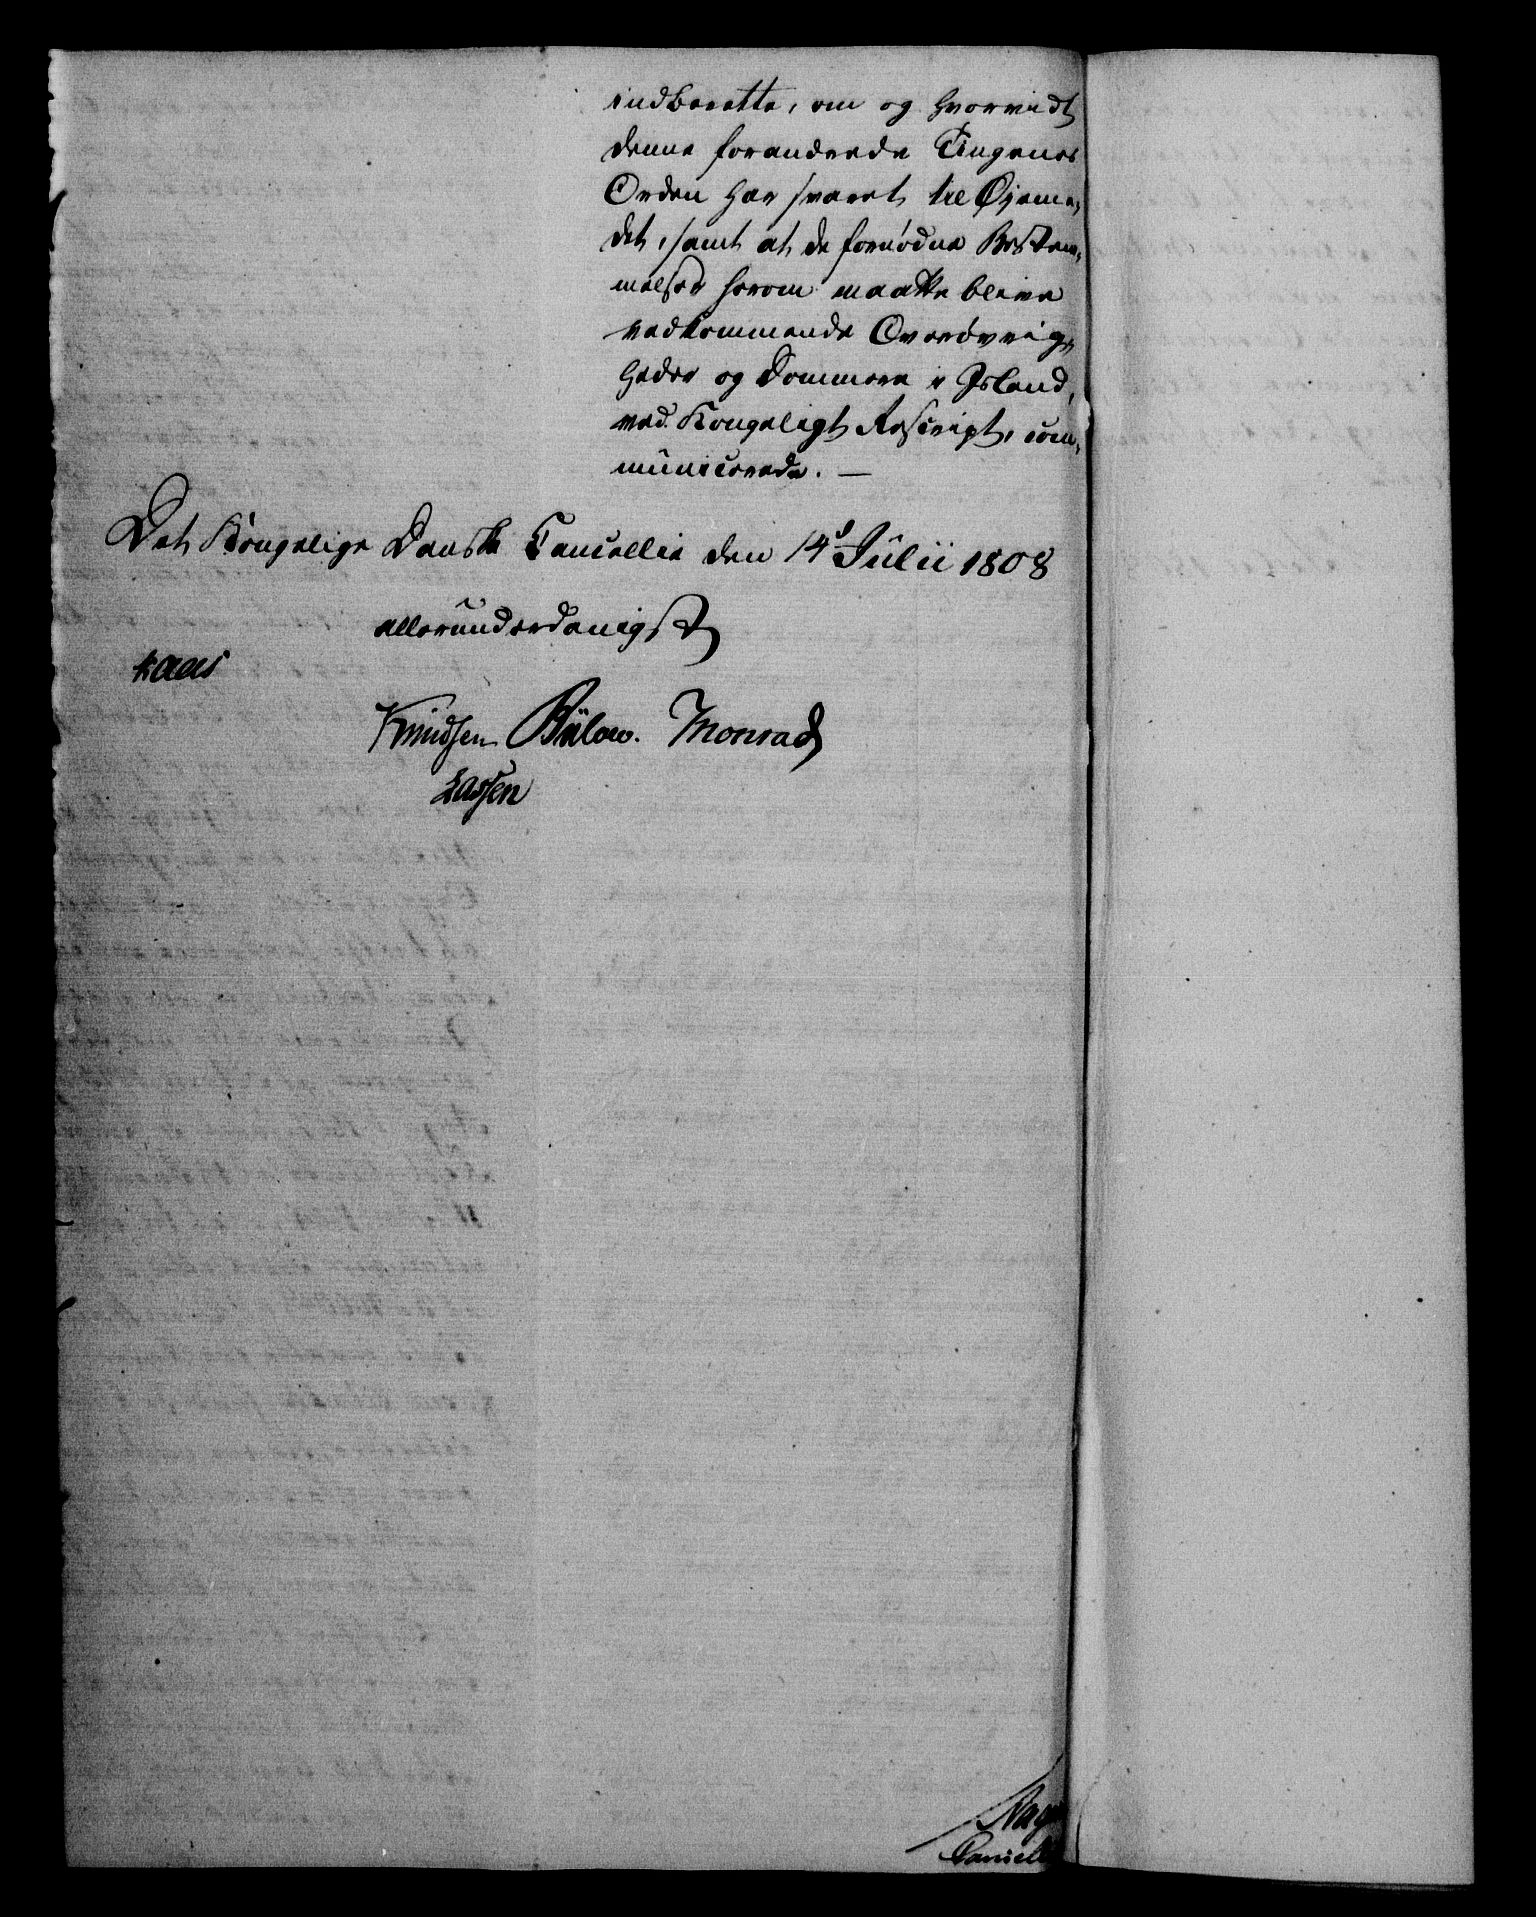 indberette, om og hvorvidt
denne forandrede Tingenes
Orden har svaret til Øjeme,
det, samt at de fornødne Bestem,
melser herom maatte blive
vedkommende Overøvrig,
heder og Dommere i Island,
ved Kongeligt Rescript, com,
municerede. —
Det Kongelige Danske Cancellie den 14d Julii 1808
allerunderdanigst
Kaas
Knudsen Bülow. Monrad
Lassen